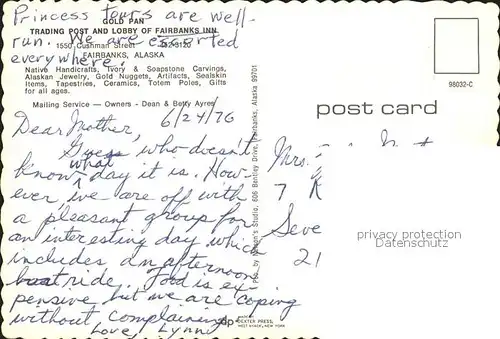 Princess tours are well-
run. We are escorted
everywhere.
GOLD PAN
TRADING POST AND LOBBY OF FAIRBANKS INN
1550 Cushman Street 452-3120
FAIRBANKS, ALASKA
Native Handicrafts, Ivory & Soapstone Carvings,
Alaskan Jewelry, Gold Nuggets, Artifacts, Sealskin
Items, Tapestries, Ceramics, Totem Poles, Gifts
for all ages.
Mailing Service — Owners - Dean & Betty Ayres
6/24/76
Dear Mother,
Guess who doesn't
know what day it is. How-
ever we are off with
a pleasant group for
an interesting day which
includes an afternoon
boat ride. Food is ex-
pensive but we are coping
without complaining.
Love, Lynn
Studio, 606 Bentley Drive, Fairbanks, Alaska 99701
98032-C
post card
Mrs.
7
Seve
21
privacy protection
Datenschutz
dp DEXTER PRESS,
WEST NYACK, NEW YORK